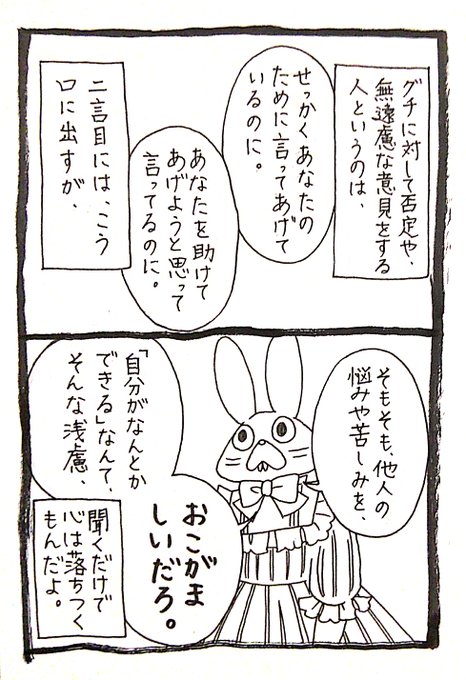 グチに対して否定や、
無遠慮な意見をする
人というのは、
せっかくあなたの
ために言ってあげて
いるのに。
あなたを助けて
あげようと思って
言ってるのに。
二言目には、こう
口に出すが、
そもそも、他人の
悩みや苦しみを、
「自分がなんとか
できる」なんて、
そんな浅慮、
おこがま
しいだろ。
聞くだけで
心は落ちつく
もんだよ。